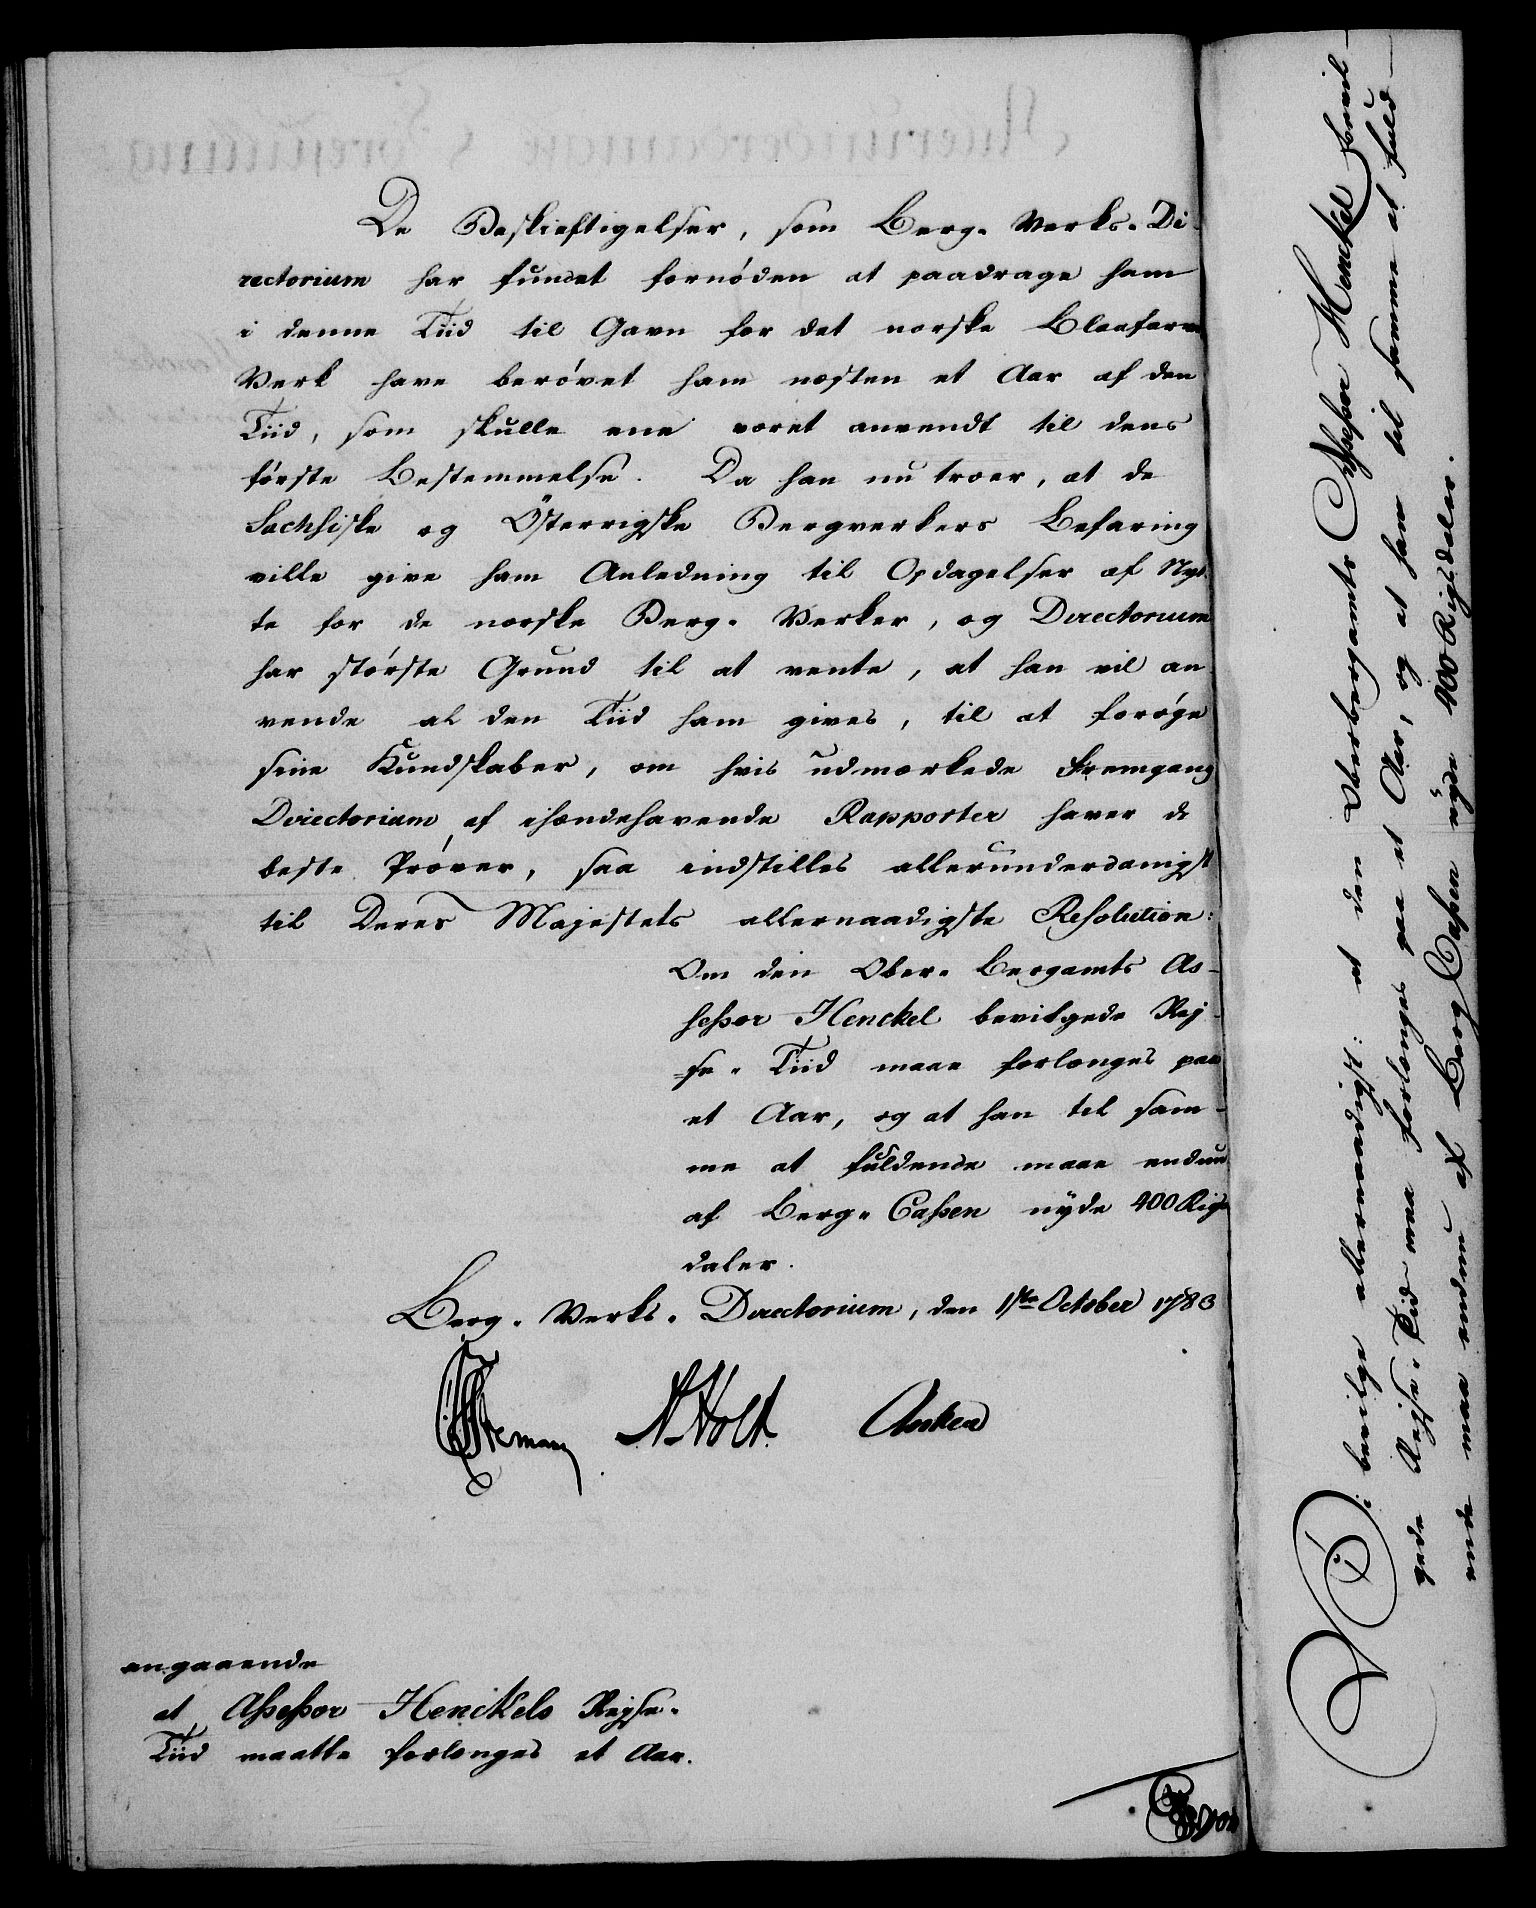 De Beskieftigelser, som Berg-Verks-Di-
rectorium har fundet fornøden at paadrage ham
i denne Tiid til Gavn for det norske Blaafarve
Verk have berøvet ham næsten et Aar af den
Tiid, som skulle ene været anvendt til dens
første Bestemmelse. Da han nu troer, at de
Sachsiske og Østerrigske Bergverkers Befaring
ville give ham Anledning til Opdagelser af Nyt-
te for de norske Berg-Verker, og Directorium
har største Grund til at vente, at han vil an
vende al den Tiid ham gives, til at forøge
sine Kundskaber, om hvis udmærkede Fremgang
Directorium af ihændehavende Rapporter haver de
beste Prøver, saa indstilles allerunderdanigst
til Deres Majestets allernaadigste Resolution:
Om den Ober-Bergamts As-
sessor Henckel bevilgede Rej-
se-Tiid maae forlænges paa
et Aar, og at han til sam-
me at fuldende maae endnu
af Berg-Cassen nyde 400 Rigs
daler.
Berg-Verks-Directorium, den 1ste October 1783
Stemann A. Holt Anker
angaaende
at Assessor Henckels Rejse-
Tiid maatte forlænges et Aar.
Vi bevilge allernaadigst: at den Oberbergamts Assessor Henckel bevil-
gede Rejse-Tid maa forlænges paa et Aar, og at han til samme at fuld-
ende maa endnu af Berg Cassen nyde 400 Rigsdaler.